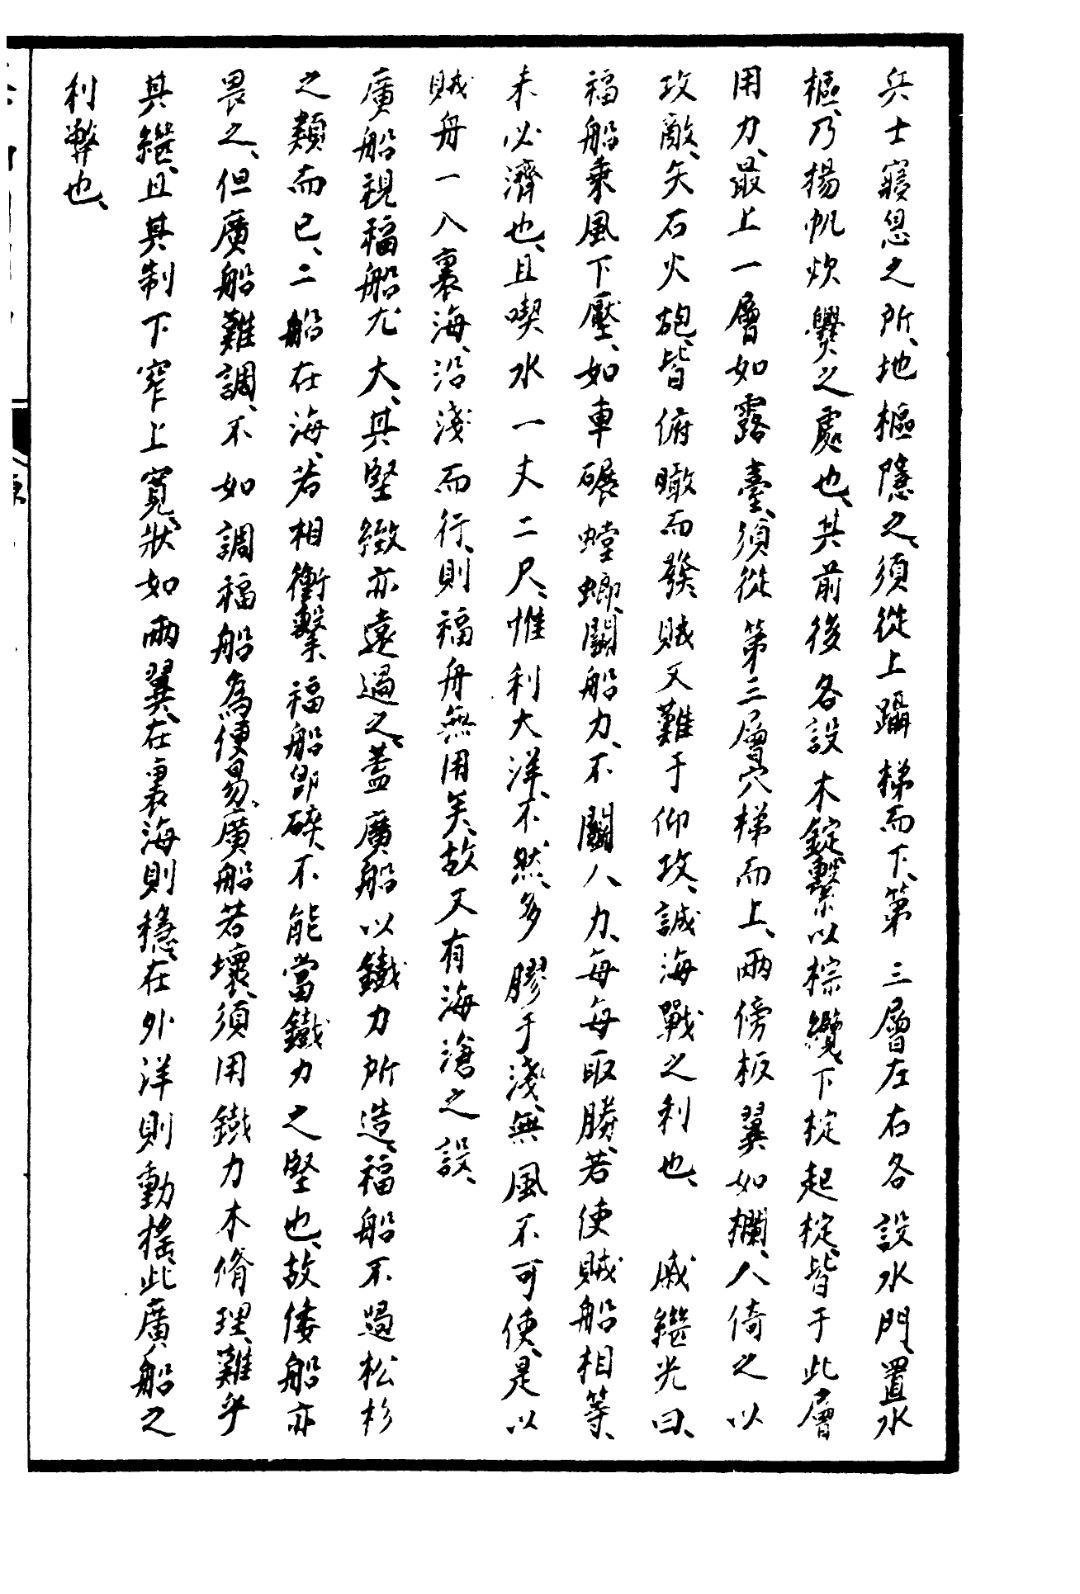 兵士寢息之所、地樞隱之、須從上躡梯而下、第三層左右各設水門、置水
樞、乃揚帆炊爨之處也、其前後各設木錠、繫以棕纜、下椗起椗、皆于此層
用力、最上一層如露臺、須從第三層穴梯而上、兩傍板翼如欄、人倚之以
攻敵、矢石火砲、皆俯瞰而發、賊又難于仰攻、誠海戰之利也、戚繼光曰、
福船乘風下壓、如車碾螳螂、鬭船力、不鬭人力、每每取勝、若使賊船相等、
未必濟也、且喫水一丈二尺、惟利大洋、不然、多膠于淺、無風不可使、是以
賊舟一入裏海、沿淺而行、則福舟無用矣、故又有海滄之設、
廣船視福船尤大、其堅緻亦遠過之、蓋廣船以鐵力所造、福船不過松杉
之類而已、二船在海、若相衝擊、福船即碎、不能當鐵力之堅也、故倭船亦
畏之、但廣船難調、不如調福船為便易、廣船若壞、須用鐵力木脩理、難乎
其繼、且其制下窄上寬、狀如兩翼、在裏海則穩、在外洋則動搖、此廣船之
利弊也、